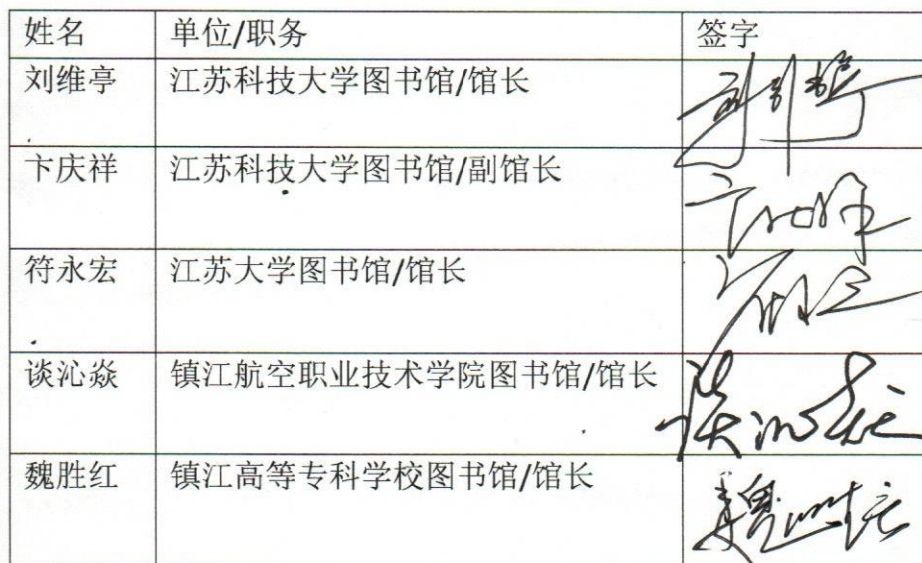 姓名 单位/职务 签字
刘维亭 江苏科技大学图书馆/馆长
卞庆祥 江苏科技大学图书馆/副馆长
符永宏 江苏大学图书馆/馆长
谈沁焱 镇江航空职业技术学院图书馆/馆长
魏胜红 镇江高等专科学校图书馆/馆长